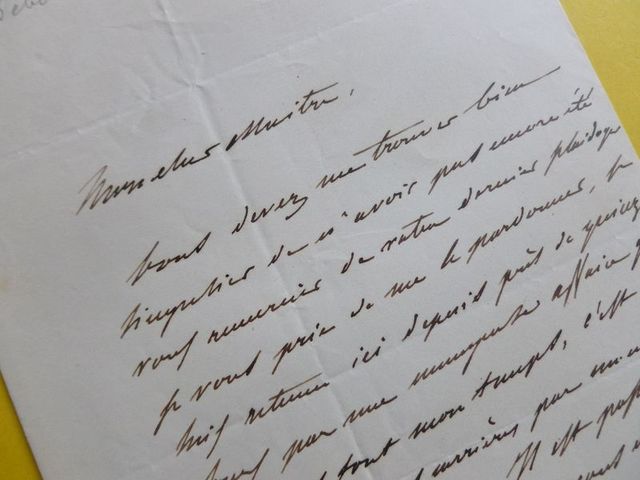 Mon cher Maître,
Vous devez me trouver bien
singulier de n'avoir pas encore été
vous remercier de votre dernier plaidoyer
je vous prie de me le pardonner, je
suis retenu ici depuis près de quinze
jours par une affaire
tout mon temps, c'est
par
Il est